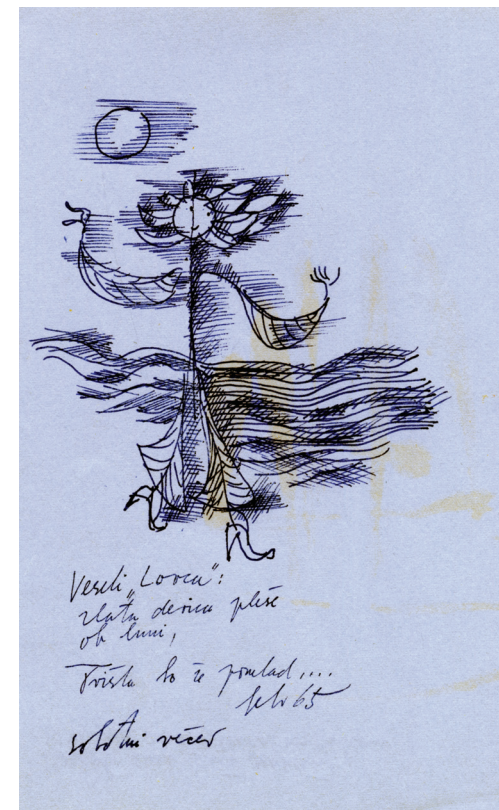 Veseli „Lorca“:
zlata devica pleše
ob luni,
Prišla bo že pomlad....
65
sobotni večer